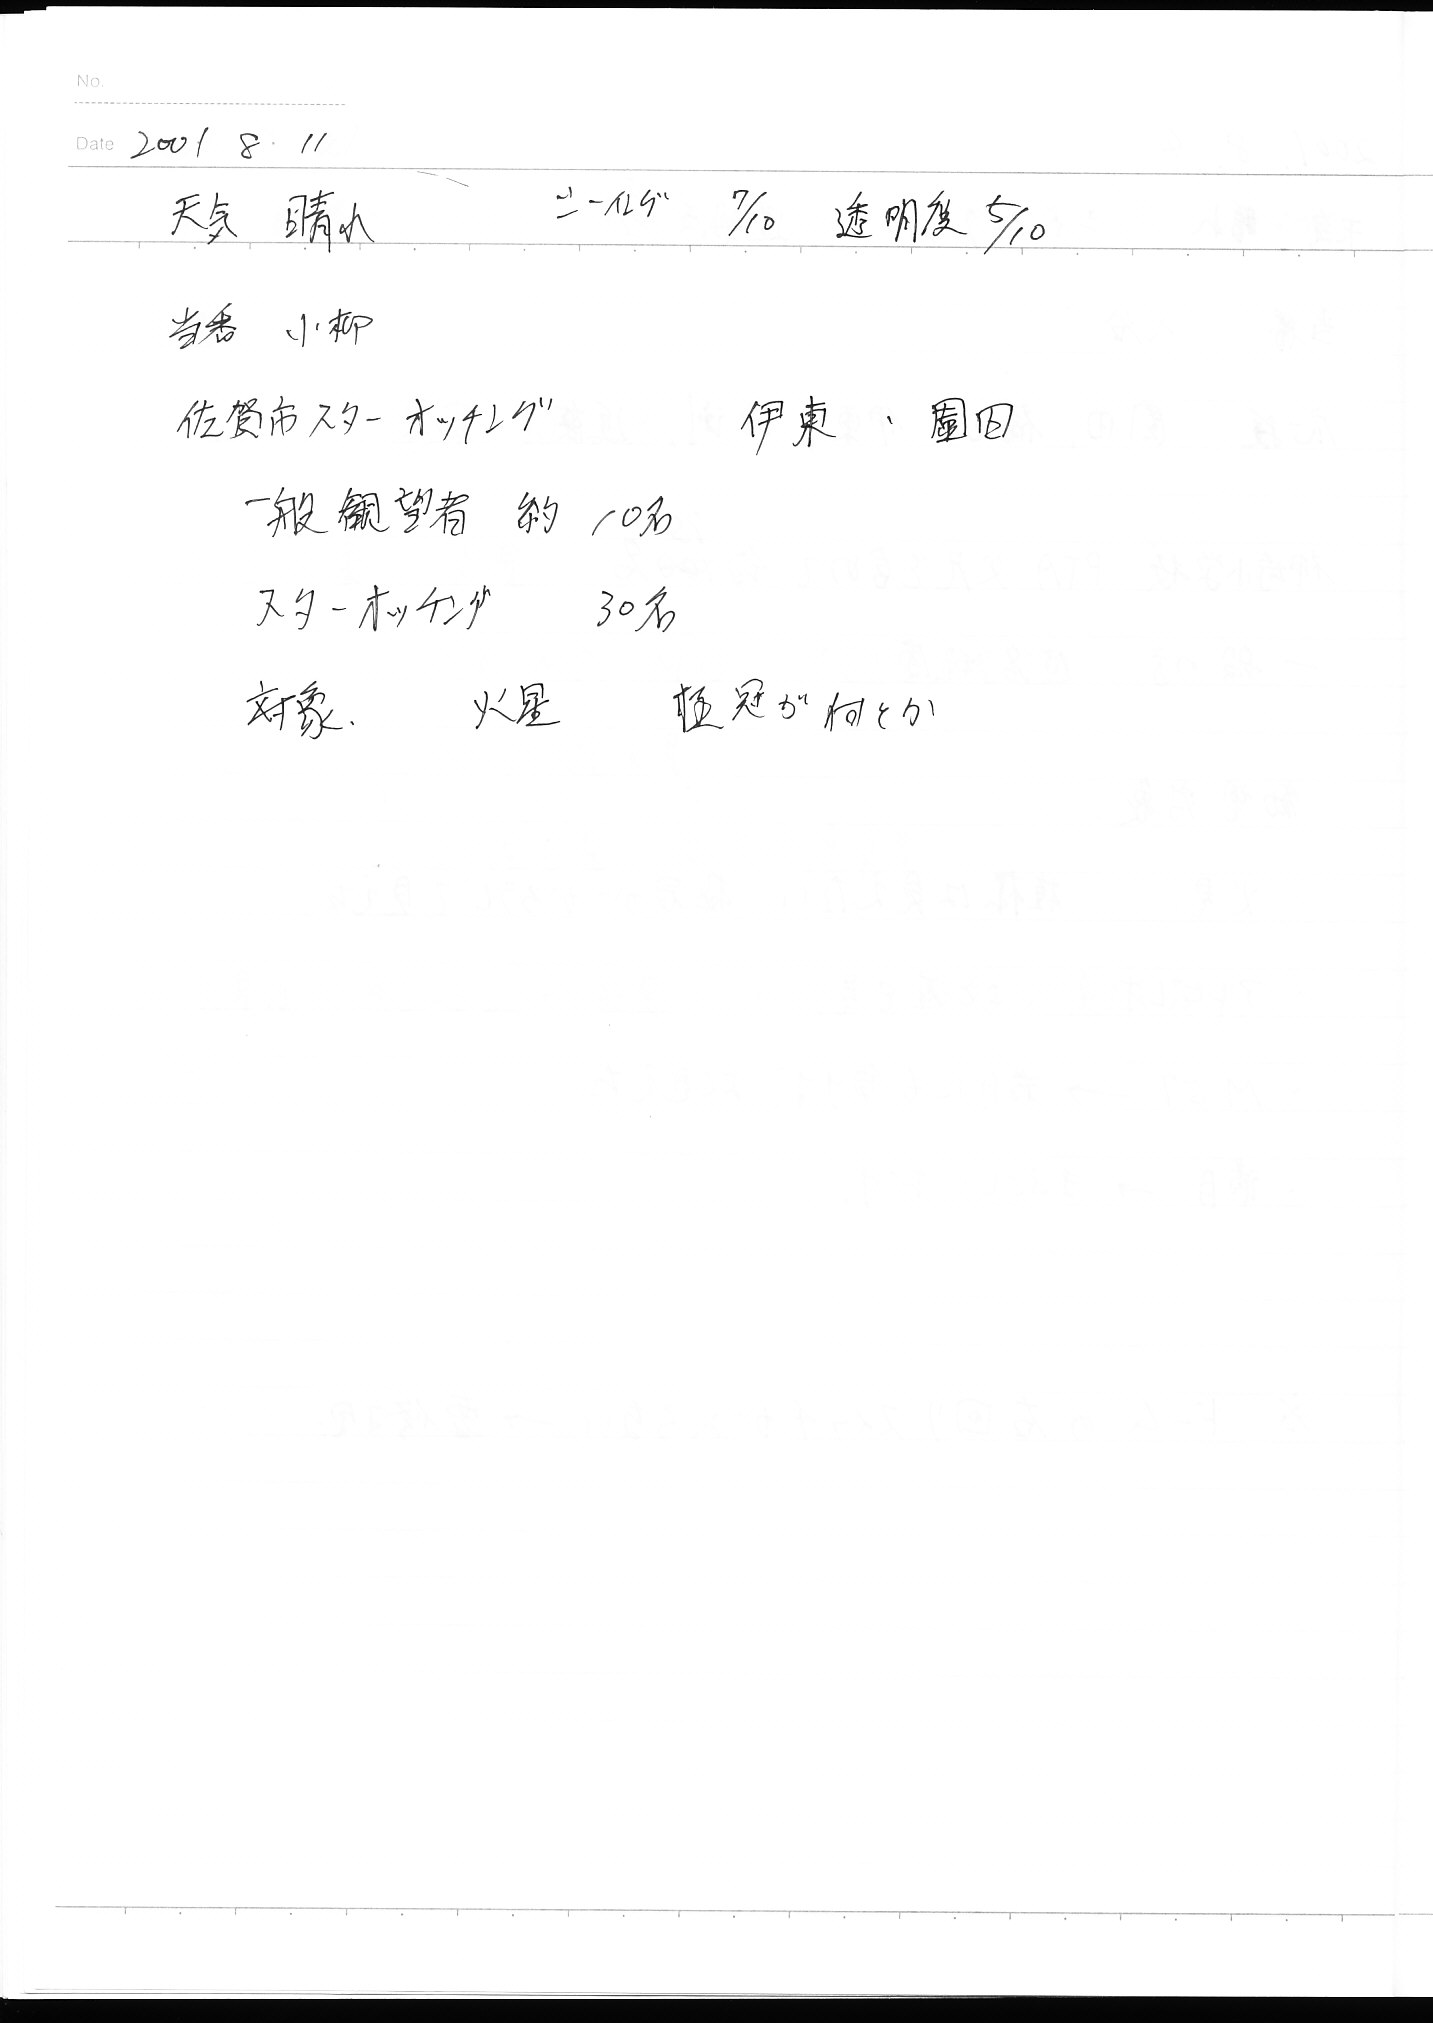 No.
Date 2001 8・11
天気 晴れ シーイング 7/10 透明度 5/10
当番 小柳
佐賀市スターオッチング 伊東、園田
一般観望者 約 10名
スターオッチング 30名
対象. 火星 極冠が何とか